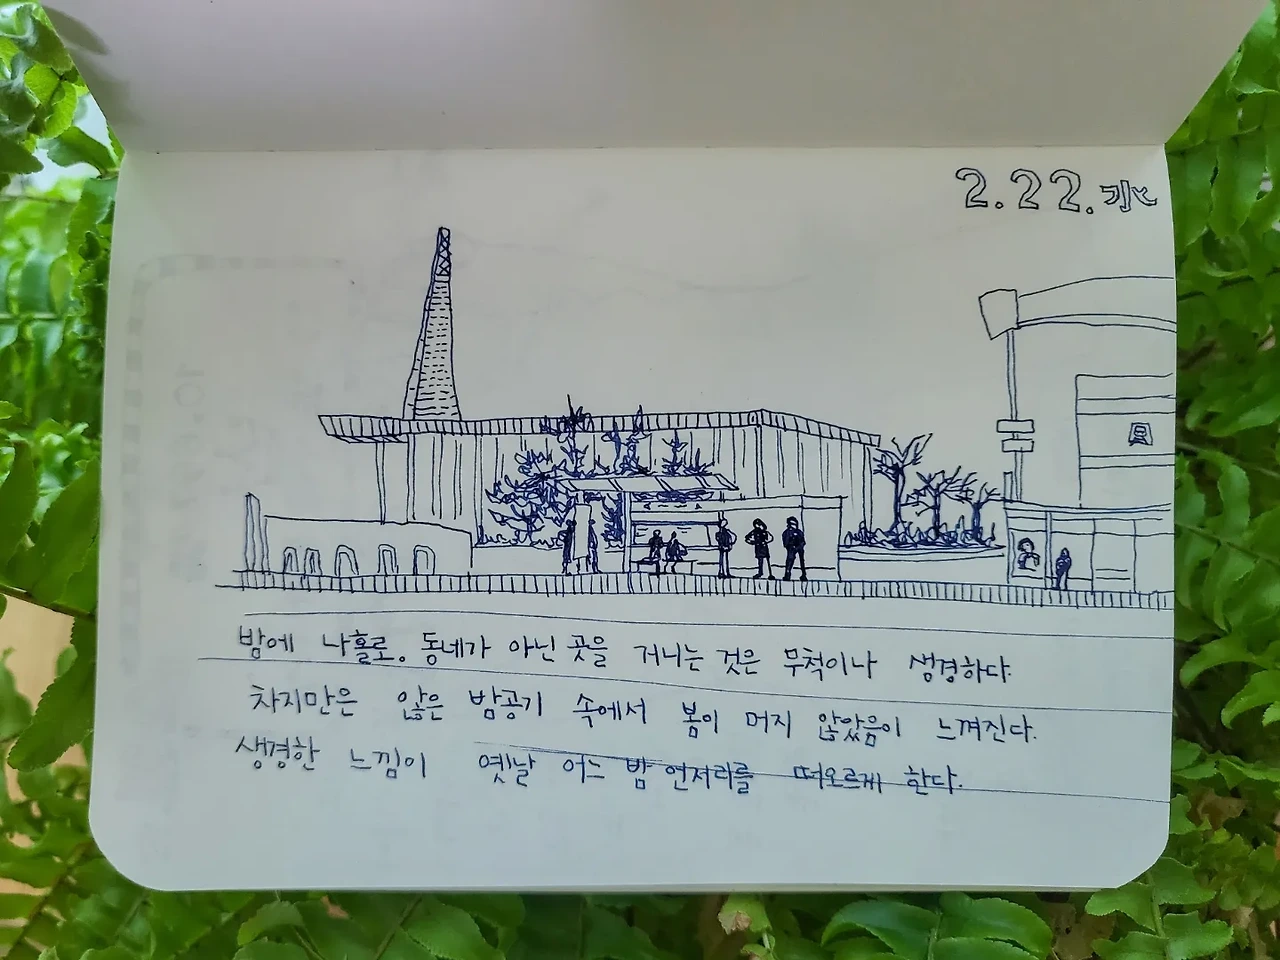 2.22.水
밤에 나홀로. 동네가 아닌 곳을 거니는 것은 무척이나 생경하다.
차지만은 않은 밤공기 속에서 봄이 머지 않았음이 느껴진다.
생경한 느낌이 옛날 어느 밤 언저리를 떠오르게 한다.